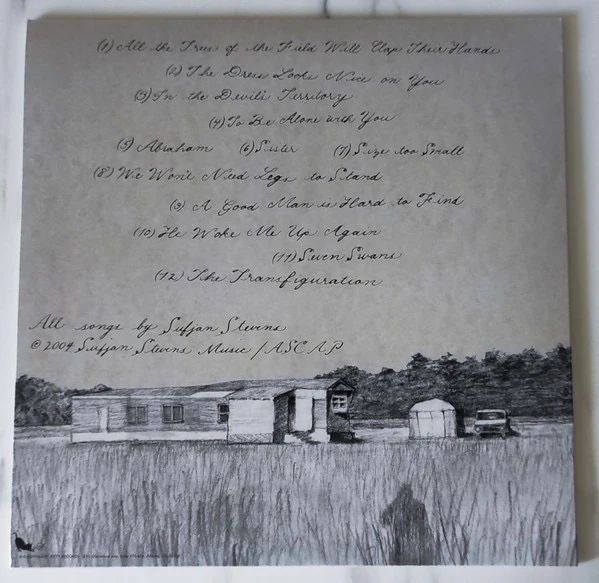 (1) All the Trees of the Field Will Clap Their Hands
(2) The Dress Looks Nice on You
(3) In the Devil's Territory
(4) To Be Alone with You
(5) Abraham (6) Sister (7) Size too Small
(8) We Won't Need Legs to Stand
(9) A Good Man is Hard to Find
(10) He Woke Me Up Again
(11) Seven Swans
(12) The Transfiguration
All songs by Sufjan Stevens
© 2004 Sufjan Stevens Music / ASCAP